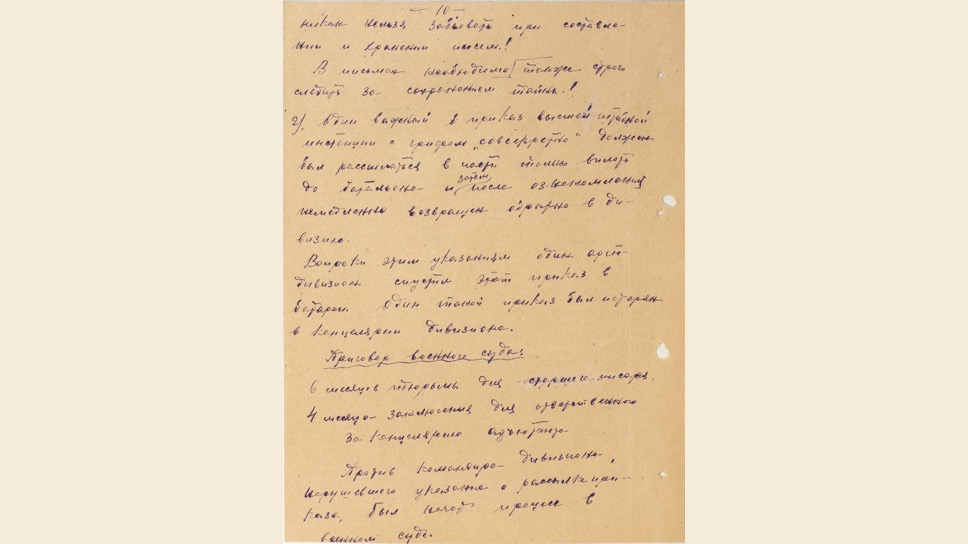 — 10 —
никак нельзя забывать при составле-
нии и хранении писем!
В письмах необходимо также строго
следить за сохранением тайны!
2). Один важный приказ высшей штабной
инстанции с грифом „совсекретно" должен
был рассылаться в части только вплоть
до батальона и затем после ознакомления
немедленно возвращен обратно в ди-
визию.
Вопреки этим указаниям один арт-
дивизион спустил этот приказ в
батареи. Один такой приказ был потерян
в канцелярии дивизиона.
Приговор военного суда:
6 месяцев тюрьмы для старшего писаря.
4 месяца заключения для ответственного
за канцелярию адъютанта
Против командира дивизиона,
нарушившего указания о рассылке при-
каза, был начат процесс в
военном суде.